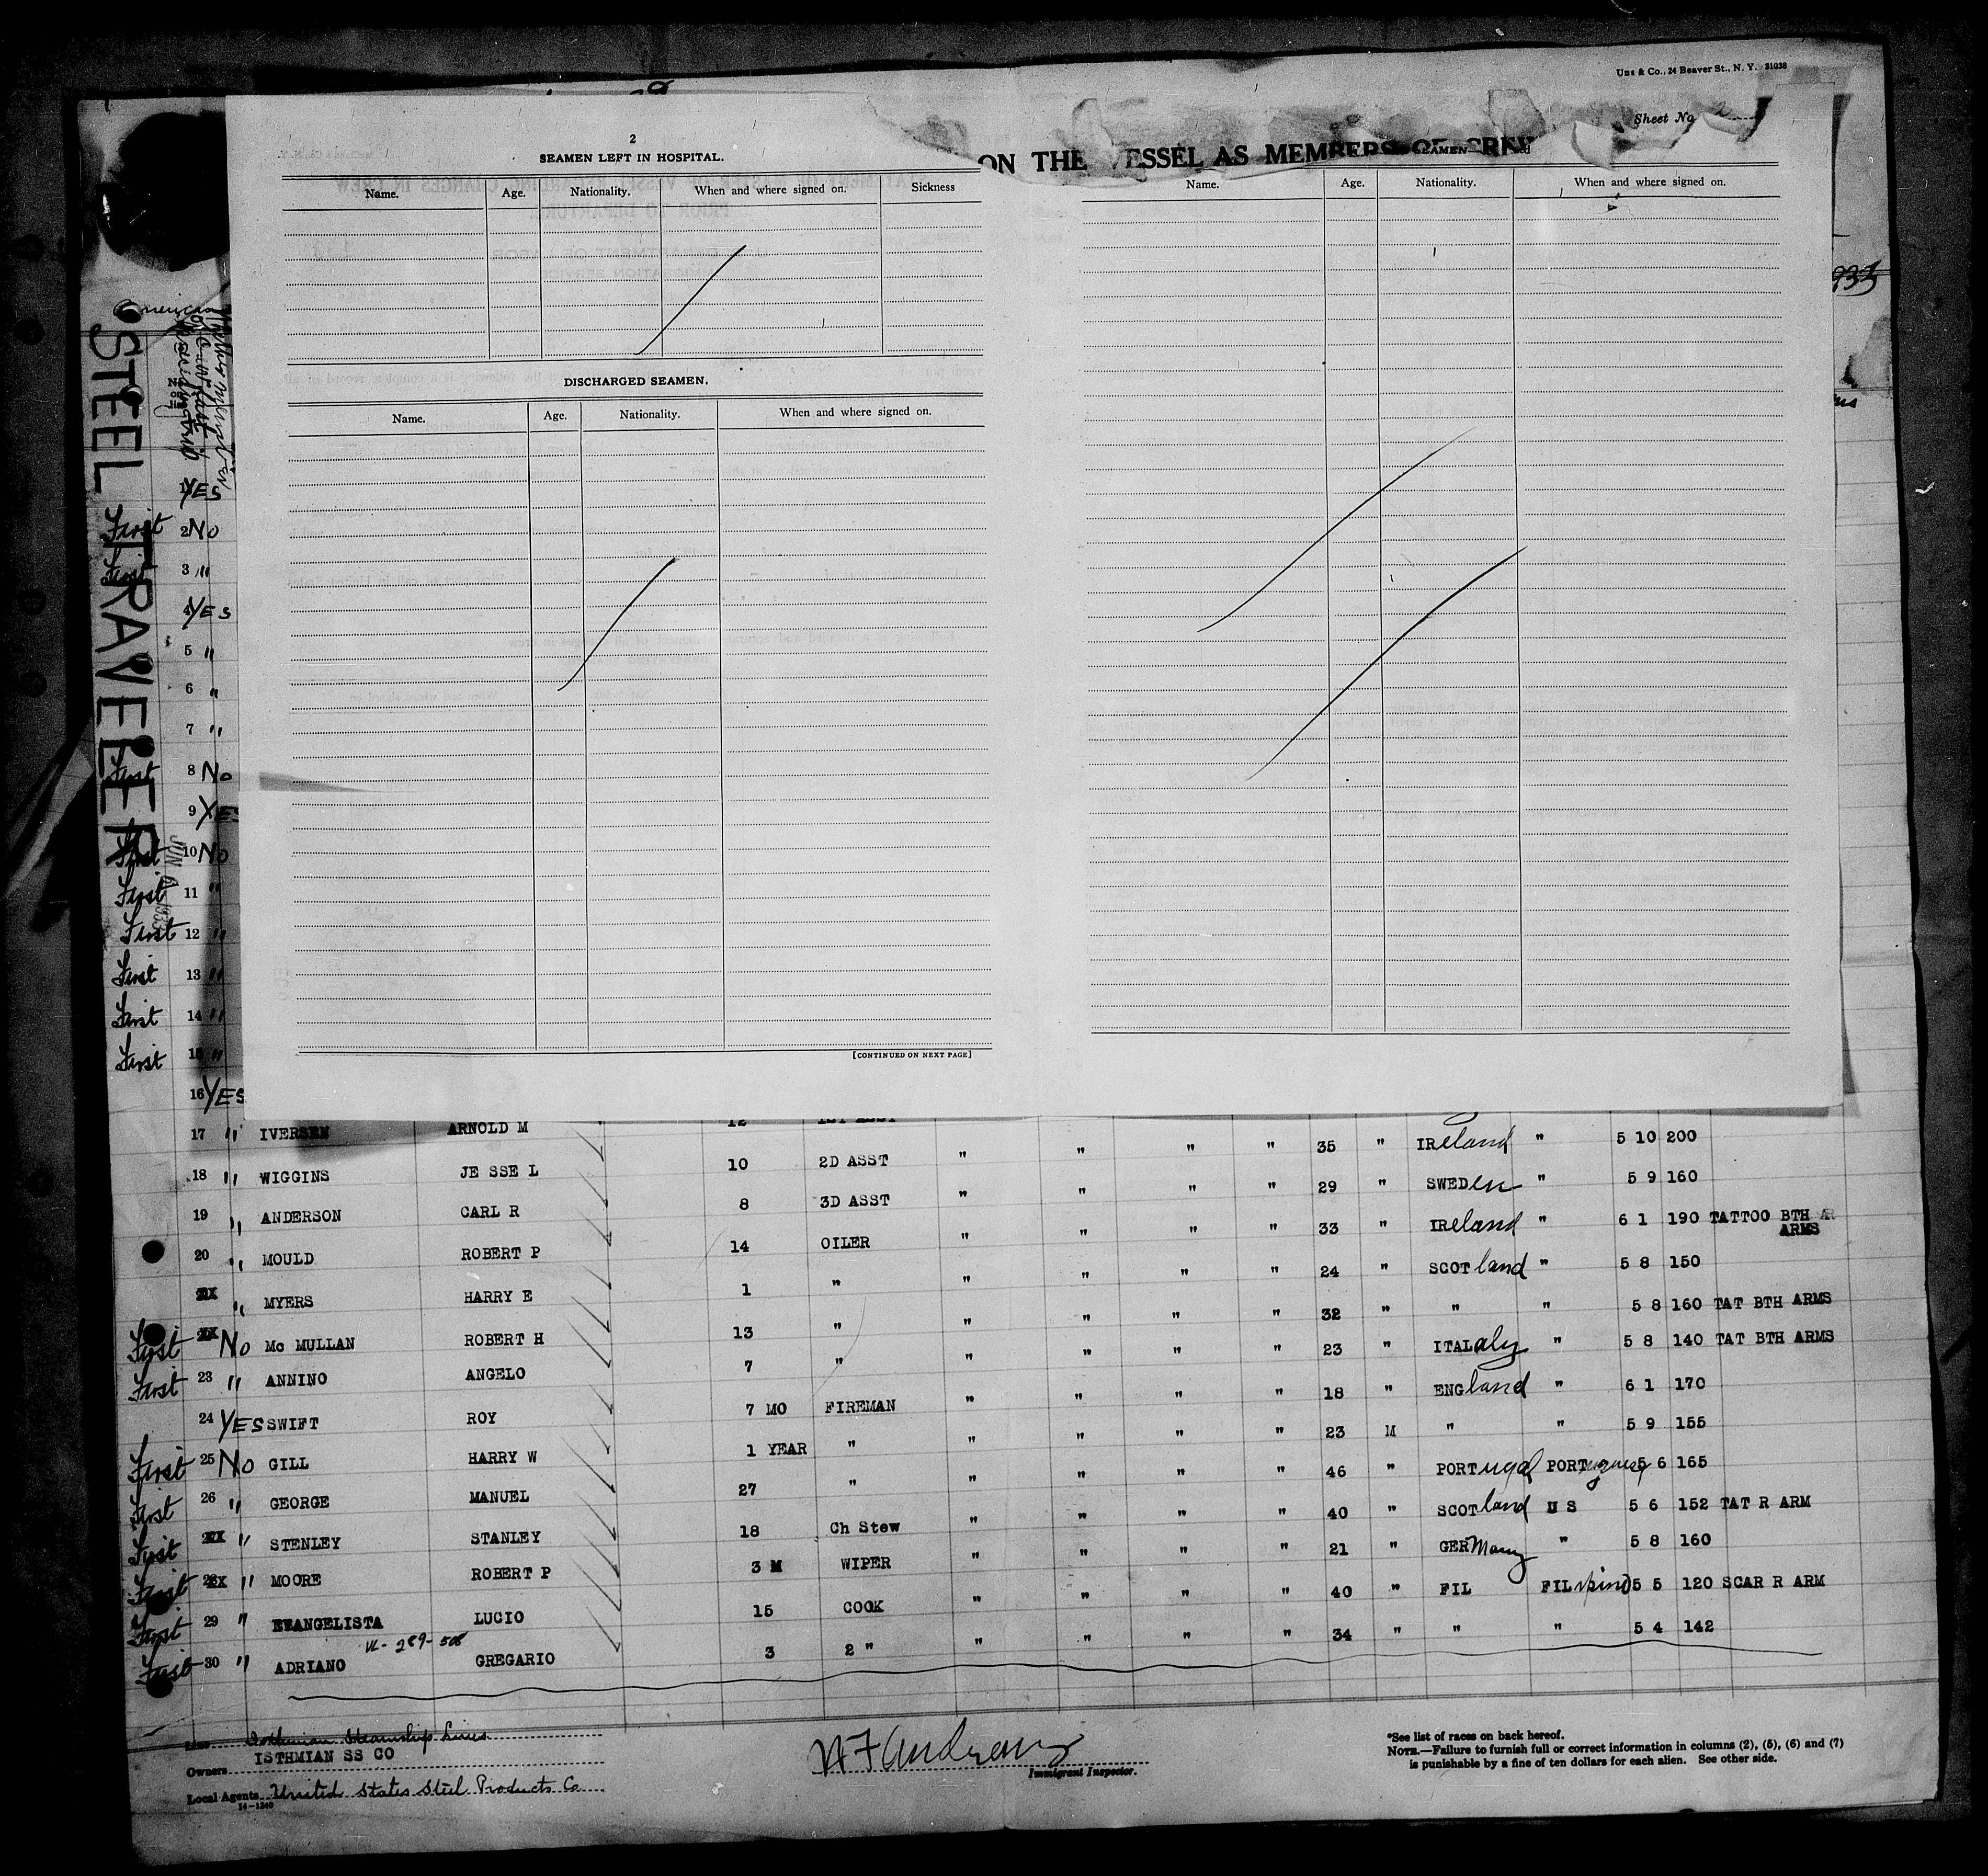 Uns & Co., 24 Beaver St., N. Y. 31038
Sheet No
ON THE VESSEL AS MEMBERS OF CREW
2
SEAMEN LEFT IN HOSPITAL.
Name. Age. Nationality. When and where signed on. Sickness
DISCHARGED SEAMEN.
Name. Age. Nationality. When and where signed on.
[CONTINUED ON NEXT PAGE]
Name. Age. Nationality. When and where signed on.
STEEL TRAVELER
1 YES
First 2 No
First 3 "
4 YES
5 "
6 "
7 "
First 8 No
9 YES
First 10 No
First 11 "
First 12 "
First 13 "
First 14 "
First 15 "
16 YES
17 " IVERSEN ARNOLD M 12 1ST ASST " " " " 35 " IReland " 5 10 200
18 " WIGGINS JESSE L 10 2D ASST " " " " 29 " SWEDen " 5 9 160
19 " ANDERSON CARL R 8 3D ASST " " " " 33 " IReland " 6 1 190 TATTOO BTH AR
ARMS
20 " MOULD ROBERT P 14 OILER " " " " 24 " SCOTland " 5 8 150
" MYERS HARRY E 1 " " " " " 32 " " " 5 8 160 TAT BTH ARMS
First No Mc MULLAN ROBERT H 13 " " " " " 23 " ITALaly " 5 8 140 TAT BTH ARMS
First 23 " ANNINO ANGELO 7 " " " " " 18 " ENGland " 6 1 170
24 YES SWIFT ROY 7 MO FIREMAN " " " " 23 M " " 5 9 155
First 25 No GILL HARRY W 1 YEAR " " " " " 46 " PORTugal PORTuguese 5 6 165
First 26 " GEORGE MANUEL 27 " " " " " 40 " SCOTland U S 5 6 152 TAT R ARM
First " STENLEY STANLEY 18 Ch Stew " " " " 21 " GERMany " 5 8 160
First 28 " MOORE ROBERT P 3 M WIPER " " " " 40 " FIL FILipino 5 5 120 SCAR R ARM
First 29 " EVANGELISTA LUCIO 15 COOK " " " " 34 " " " 5 4 142
First 30 " ADRIANO GREGARIO 3 2 " " " "
Line Isthmian Steamship Lines
Owners ISTHMIAN SS CO
Local Agents United States Steel Products Co
14-1240
Immigrant Inspector.
*See list of races on back hereof.
NOTE.—Failure to furnish full or correct information in columns (2), (5), (6) and (7)
is punishable by a fine of ten dollars for each alien. See other side.